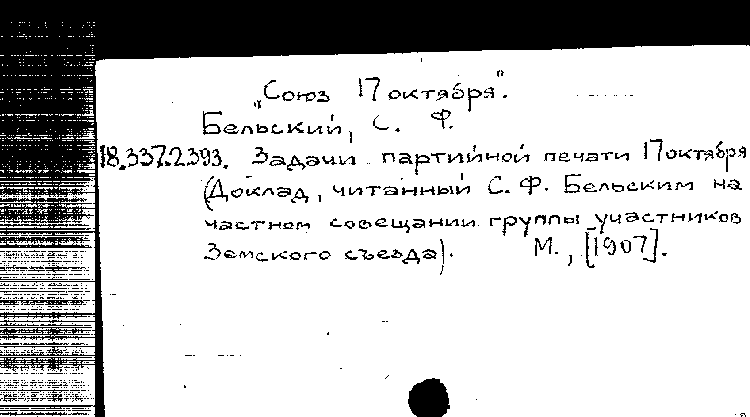 „Союз 17 октября".
Бельский, С. Ф.
18.337.2393. Задачи партийной печати 17 октября
(Доклад, читанный С. Ф. Бельским на
частном совещании группы участников
Земского съезда). М., [1907].